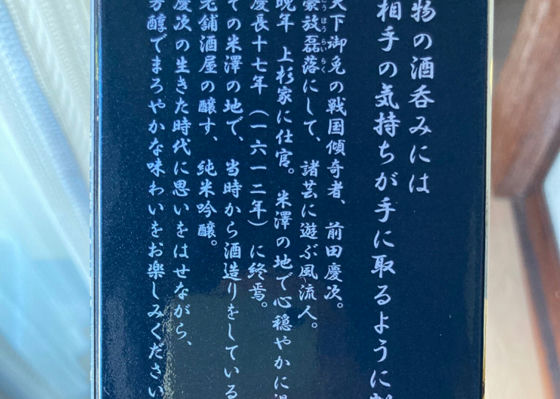 物の酒呑みには
相手の気持ちが手に取るように
天下御免の戦国傾奇者、前田慶次。
豪放磊落にして、諸芸に遊ぶ風流人。
晩年 上杉家に仕官。米澤の地で心穏やかに
慶長十七年(一六一二年)に終焉。
の米澤の地で、当時から酒造りをしている
老舗酒屋の醸す、純米吟醸。
慶次の生きた時代に思いをはせながら、
芳醇でまろやかな味わいをお楽しみください